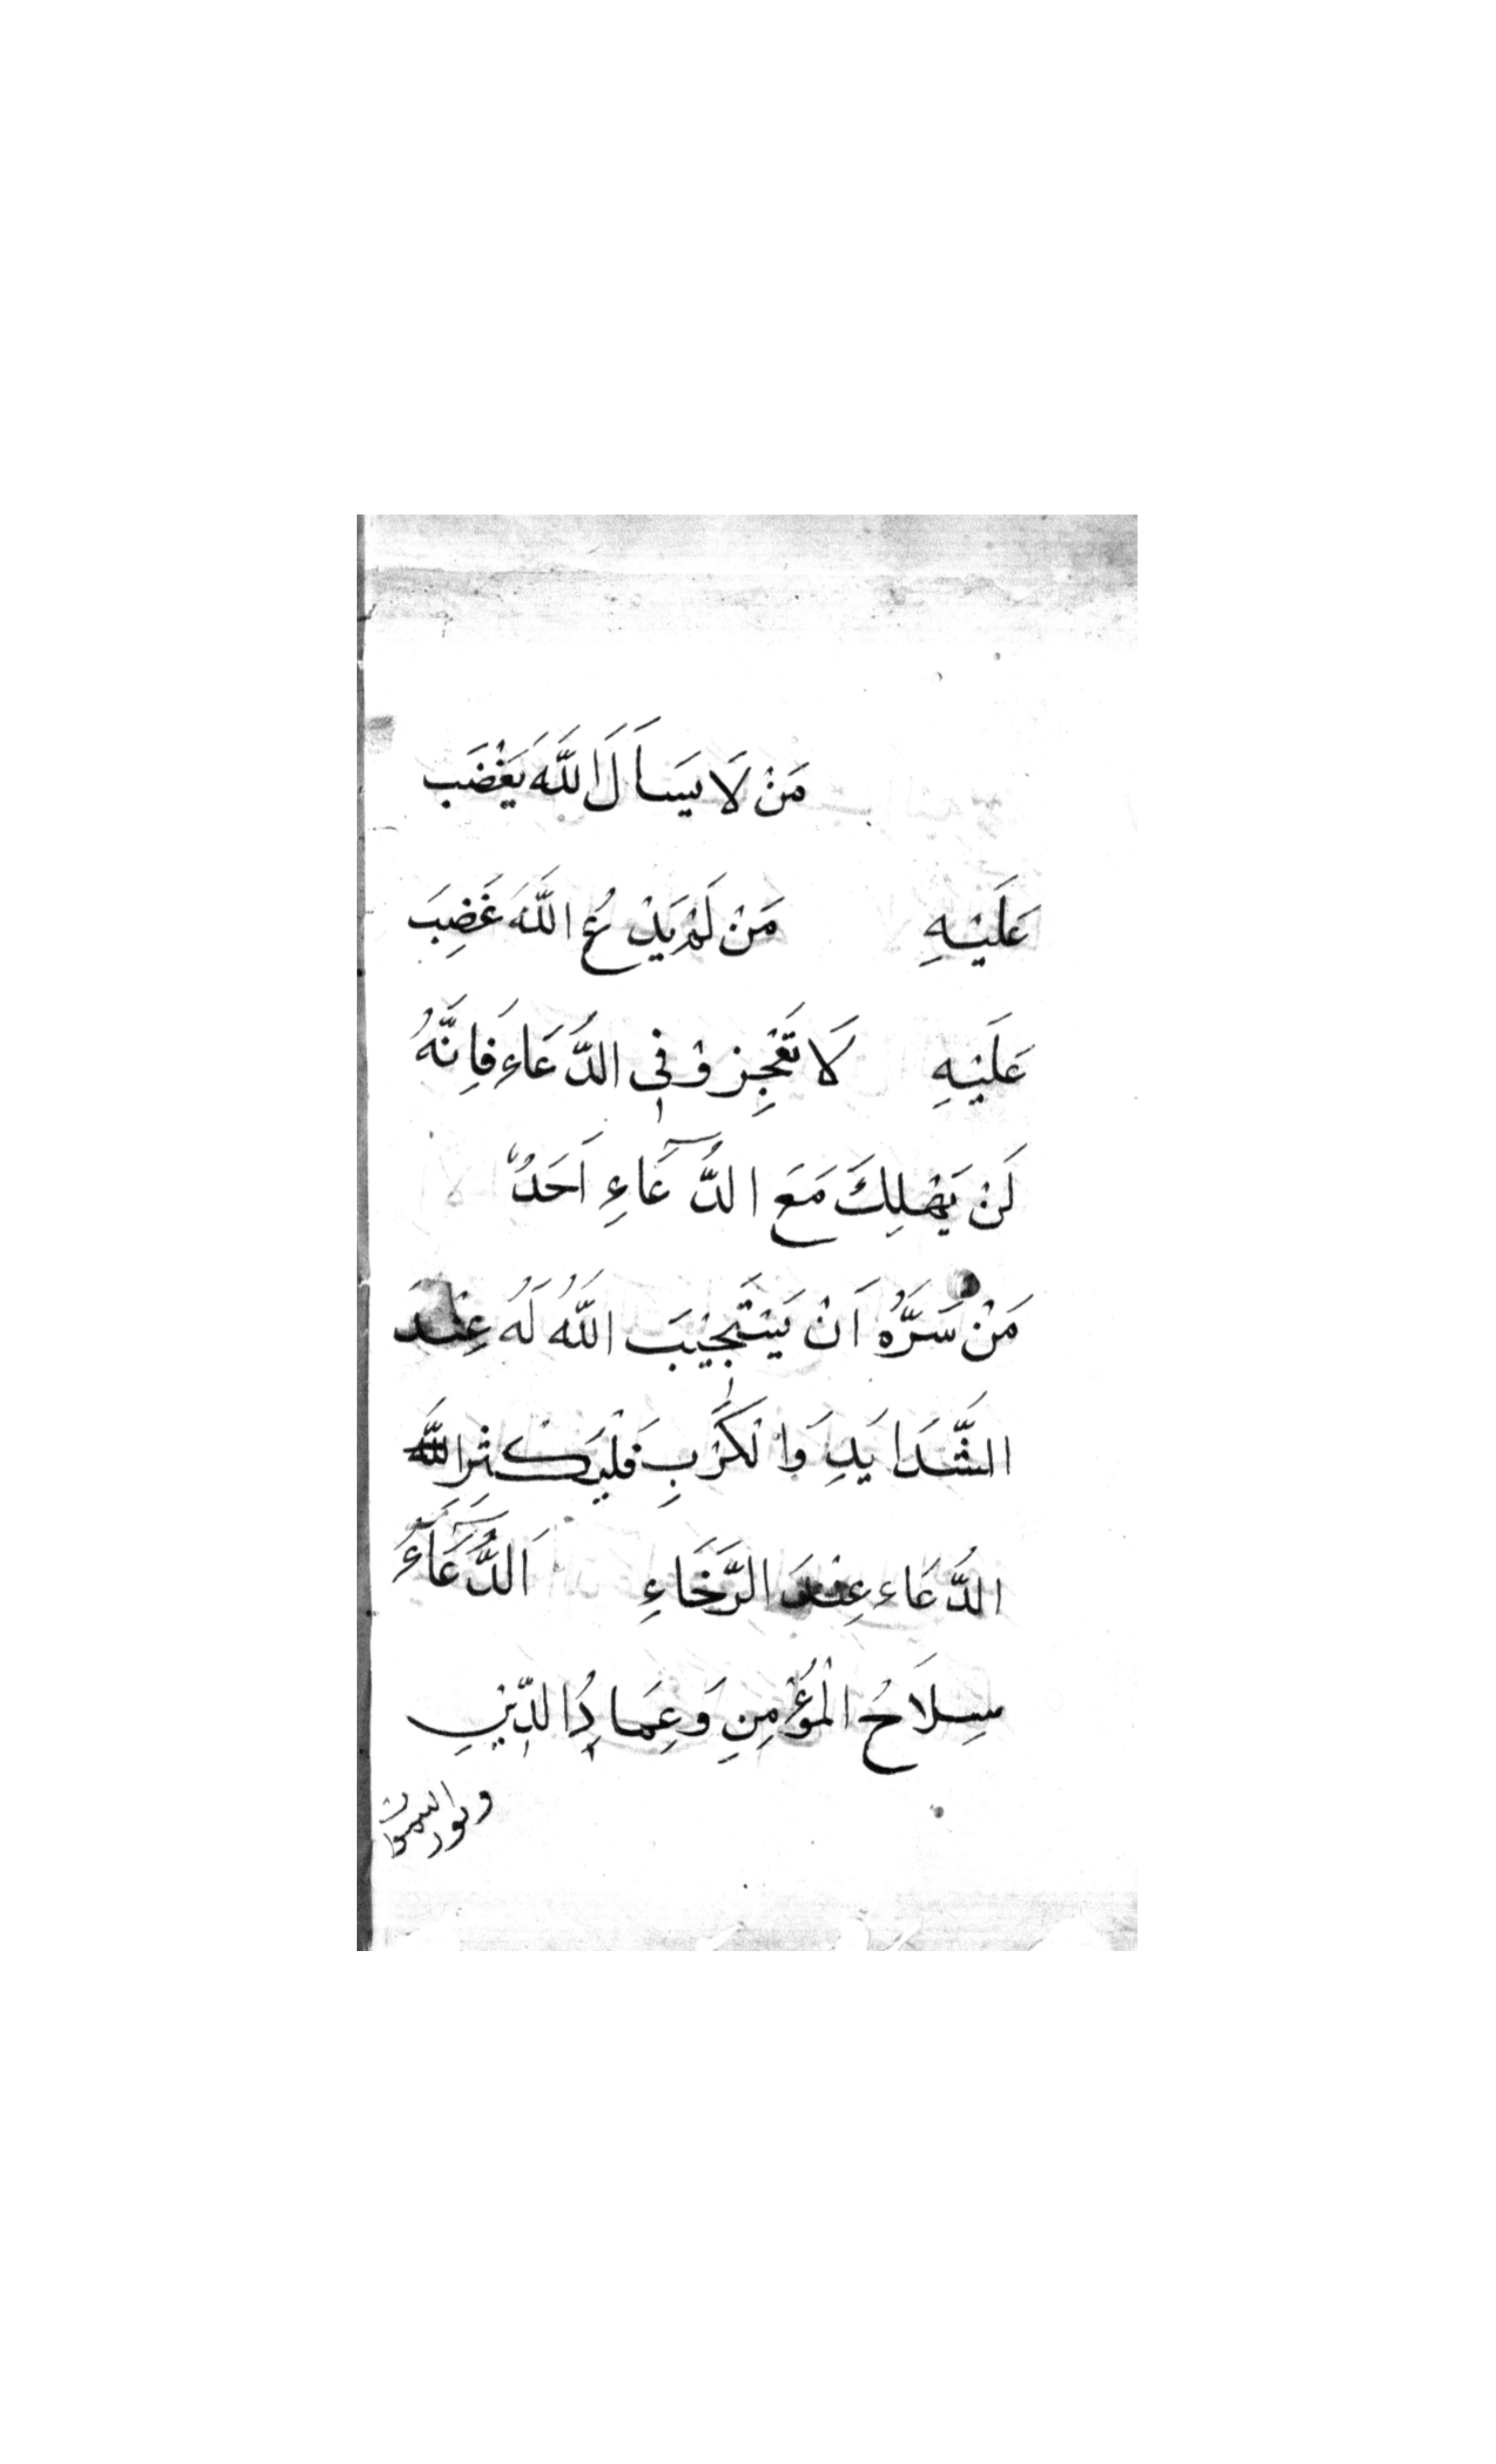 مَنْ لَا يَسَاَلَ اللَّهَ يَغْضَب
عَلَيْهِ مَنْ لَمْ يَدْعُ اللَّهَ غَضِبَ
عَلَيْهِ لَا تَعْجِزوْ فِى الدُّعَاءِ فَاِنَّهُ
لَنْ يَهْلِكَ مَعَ الدُّعَآءِ اَحَدٌ
مَنْ سَرَّهُ اَنْ يَسْتَجِيْبَ اللَّهُ لَهُ عِنْدَ
الشَّدَايَدِ وَالْكَرْبِ فَلْيَكْثِرِ اللَّه
الدُّعَاء عِنْدَ الرَّخَاءِ اَلدُّعَآءُ
سِلَاحُ الْمُؤْمِنِ وَعِمَادُ الدِّيْنِ
ونور السموات